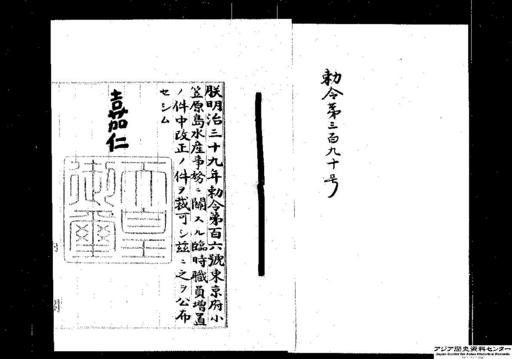 勅令第三百九十号
朕明治三十九年勅令第百六號東京府小
笠原島水産事務ニ關スル臨時職員增置
ノ件中改正ノ件ヲ裁可シ茲ニ之ヲ公布
セシム
嘉仁
天皇
御璽
アジア歴史資料センター
Japan Center for Asian Historical Records